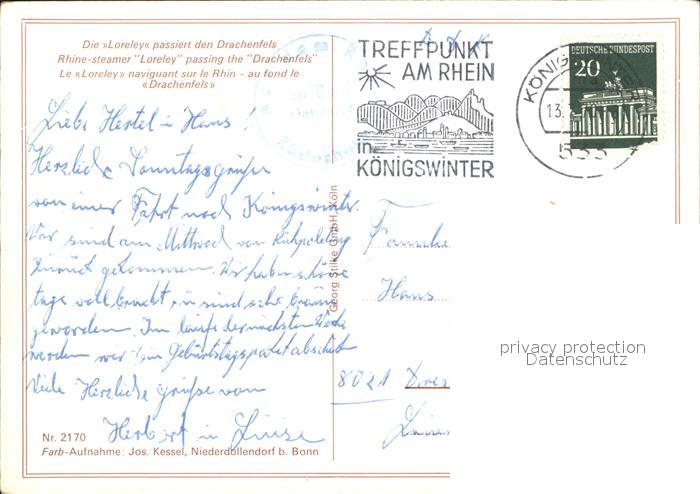 Die »Loreley« passiert den Drachenfels
Rhine-steamer "Loreley" passing the "Drachenfels"
Le «Loreley» naviguant sur le Rhin - au fond le
«Drachenfels»
Liebe Hertel u Hans!
Herzliche Sonntagsgrüße
von einer Fahrt nach Königswinter.
Wir sind am Mittwoch von
zurück gekommen. Wir haben schöne
tage vollbracht, u sind sehr braun
geworden. Im laufe der nächsten Woche
werden wir ein Geburtstagspaket abschick
Viele Herzliche grüße von
Herbert u Luise
Nr. 2170
Farb-Aufnahme: Jos. Kessel, Niederdollendorf b. Bonn
Georg Stilke GmbH, Köln
TREFFPUNKT
AM RHEIN
in
KÖNIGSWINTER
KÖNIG
13.
533
DEUTSCHE BUNDESPOST
20
Familie
Hans
8021 Dres
privacy protection
Datenschutz